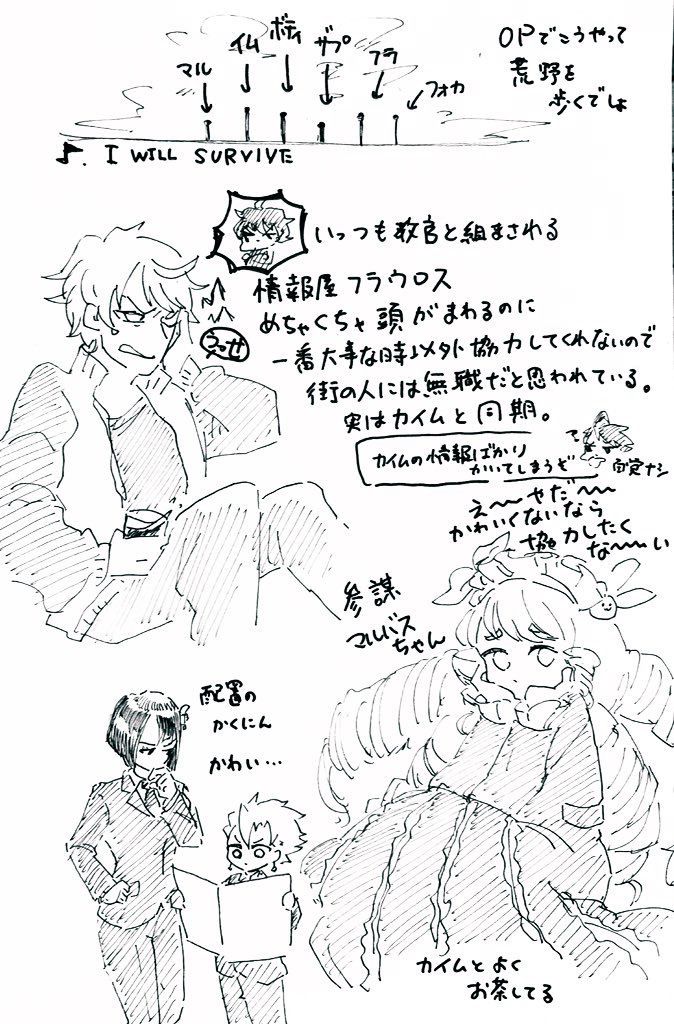 OPでこうやって
荒野を
歩くでしょ
マル
イム
ボティ
ザプ
フラ
フォカ
♪. I WILL SURVIVE
いっつも教官と組まされる
情報屋フラウロス
めちゃくちゃ頭がまわるのに
一番大事な時以外協力してくれないので
街の人には無職だと思われている。
実はカイムと同期。
うっせ
カイムの情報ばかり
かいてしまうぞ
え〜〜やだ〜〜
かわいくないなら
協力したく
な〜〜い
参謀
マルバス
ちゃん
配置の
かくにん
かわい…
カイムとよく
お茶してる